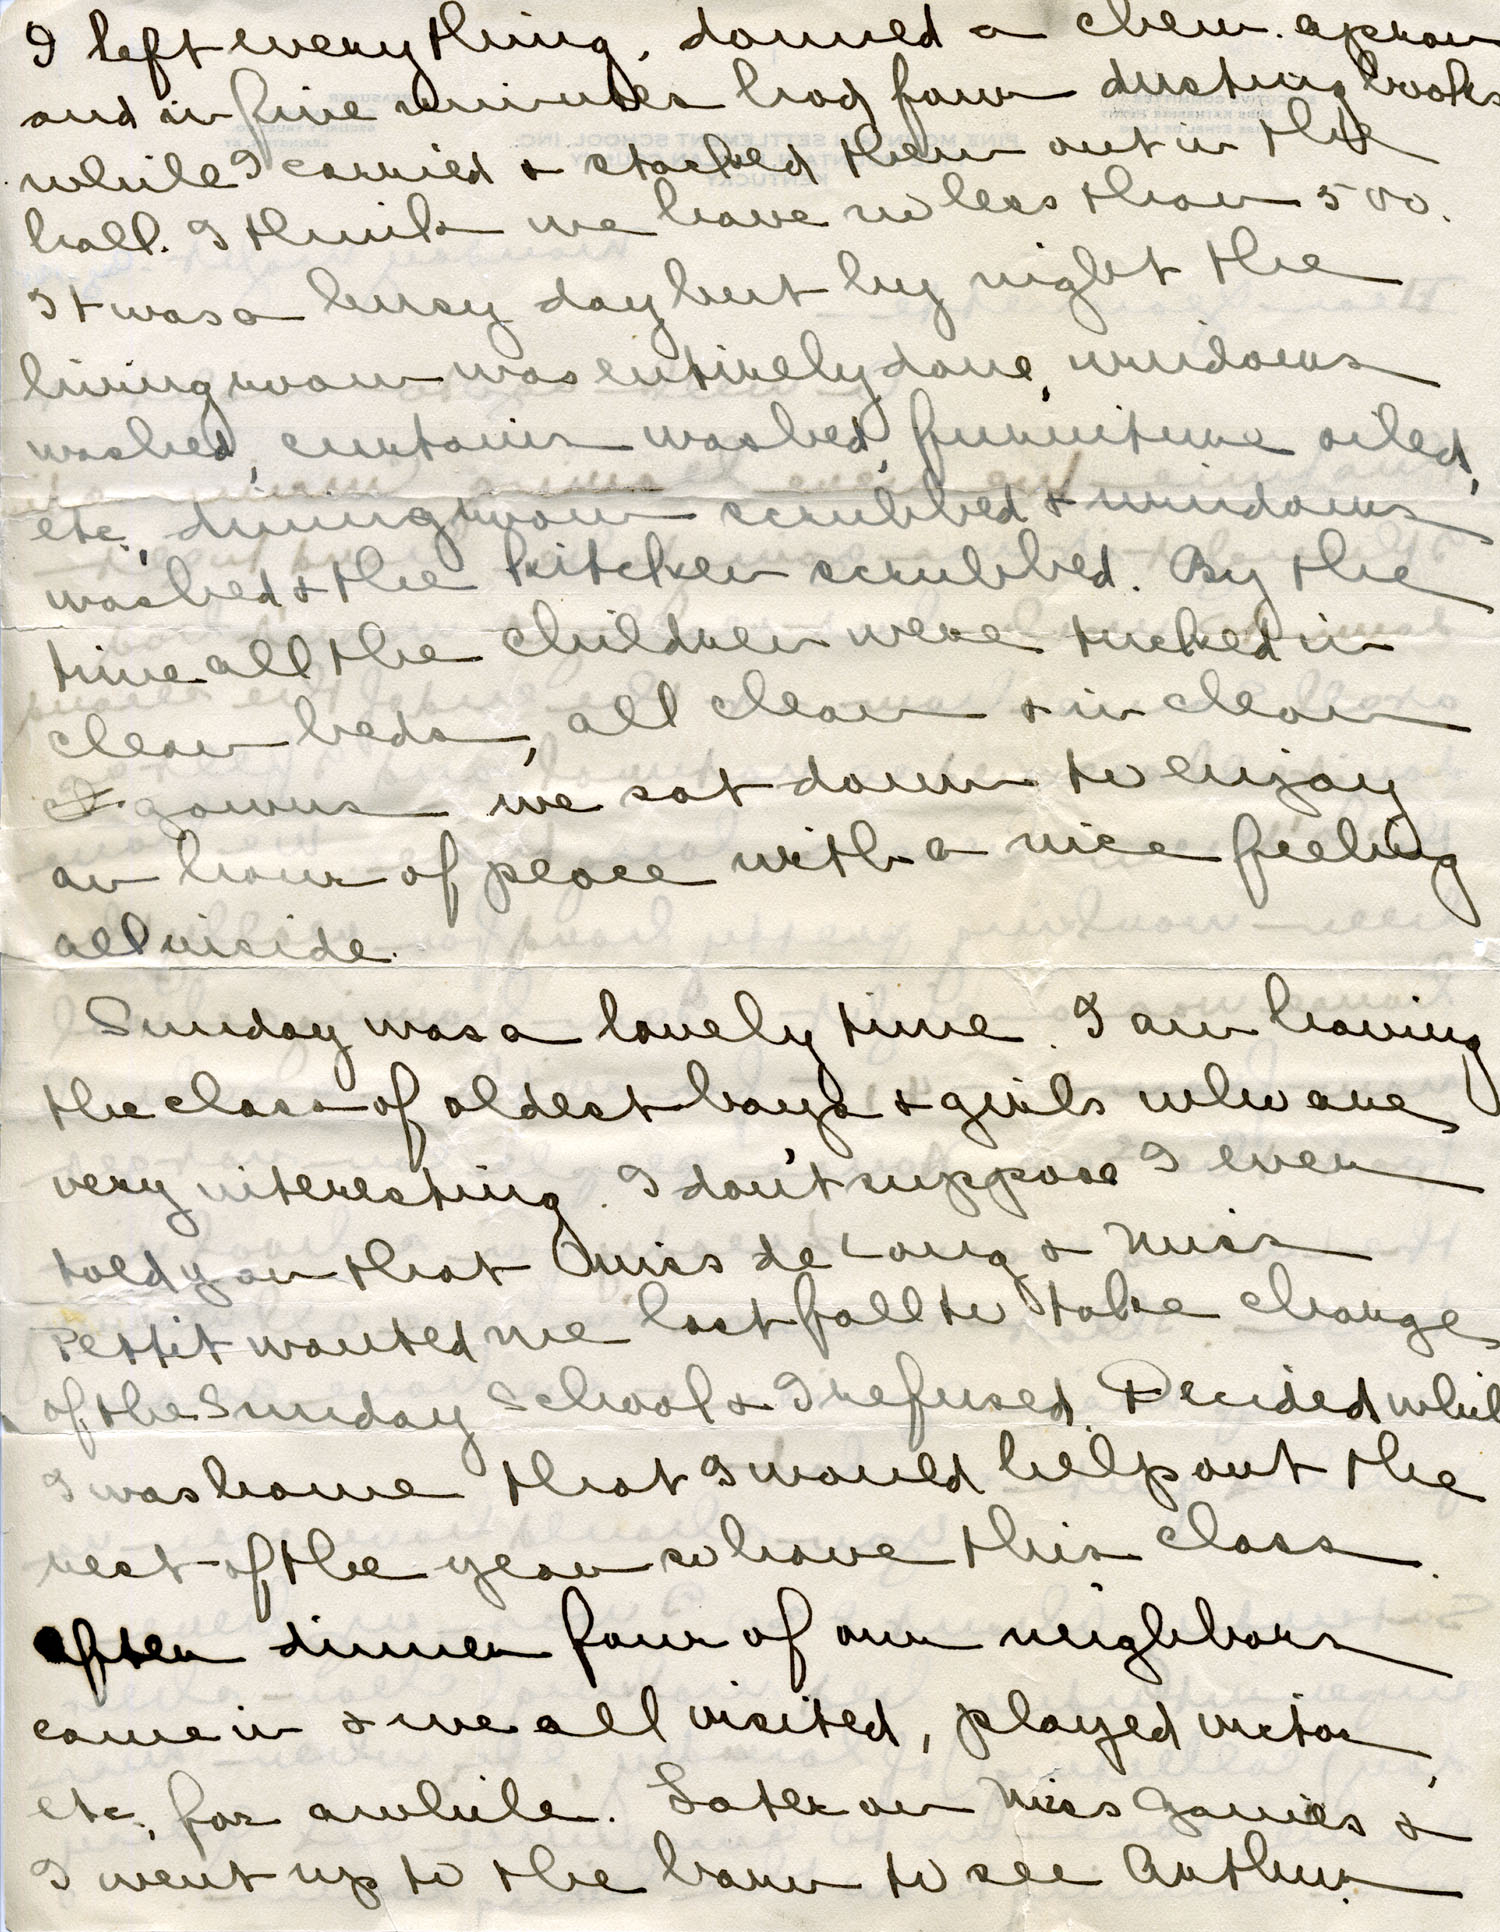 I left everything, donned a chem. apron
and in five minutes had four dusting books
while I carried & stacked them out in the
hall. I think we have no less than 500.
It was a busy day but by night the
living room was entirely done, windows
washed, curtains washed, furniture oiled,
etc., dining room scrubbed & windows
washed & the kitchen scrubbed. By the
time all the children were tucked in
clean beds, all clean & in clean
gowns we sat down to enjoy
an hour of peace with a nice feeling
all inside.
Sunday was a lovely time. I am having
the class of oldest boys & girls who are
very interesting. I don't suppose I ever
told you that Miss de Long & Miss
Pettit wanted me last fall to take charge
of the Sunday School & I refused. Decided whil
I was home that I would help out the
rest of the year so have this class.
After dinner four of our neighbors
came in & we all visited, played victor,
etc., for awhile. Later on Miss Gaines &
I went up to the barn to see Arthur.
PINE MOUNTAIN SETTLEMENT SCHOOL, INC.
KENTUCKY
TREASURER